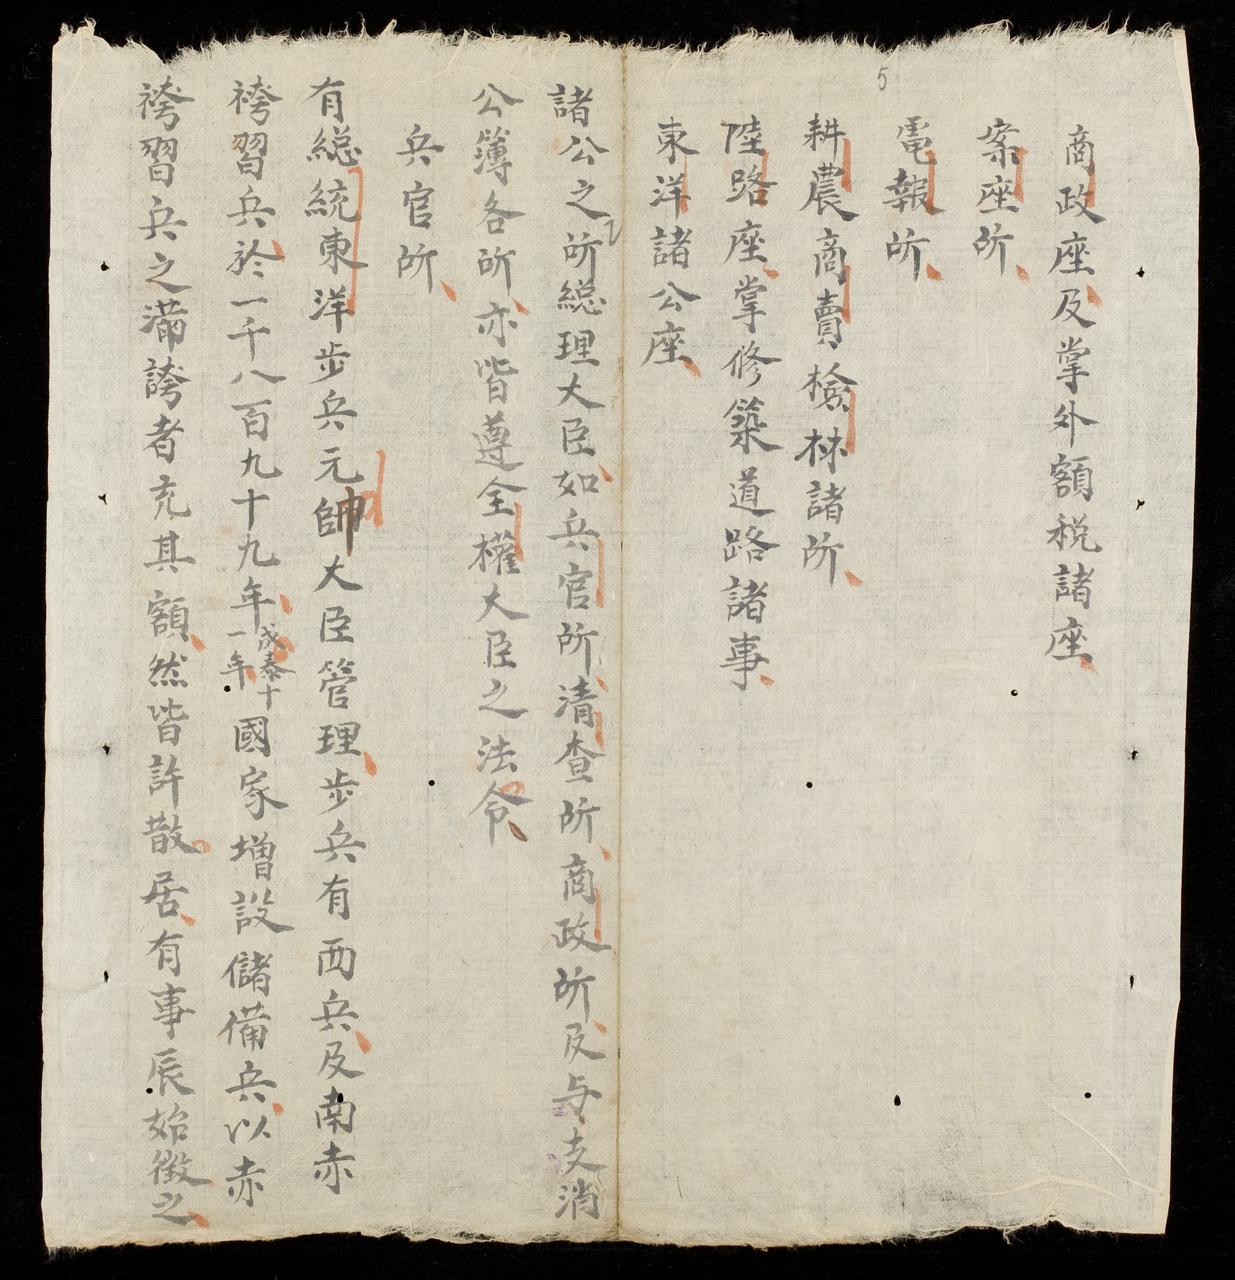 5
商政座及掌外額税諸座
案座所
電報所
耕農商賣檢林諸所
陸路座掌修築道路諸事
東洋諸公座
諸公之所総理大臣如兵官所清查所商政所及与支消
公簿各所亦皆遵全權大臣之法令
兵官所
有総統東洋步兵元帥大臣管理步兵有西兵及南赤
袴習兵於一千八百九十九年成泰十一年國家增設儲備兵以赤
袴習兵之滿誇者充其額然皆許散居有事辰始徵之